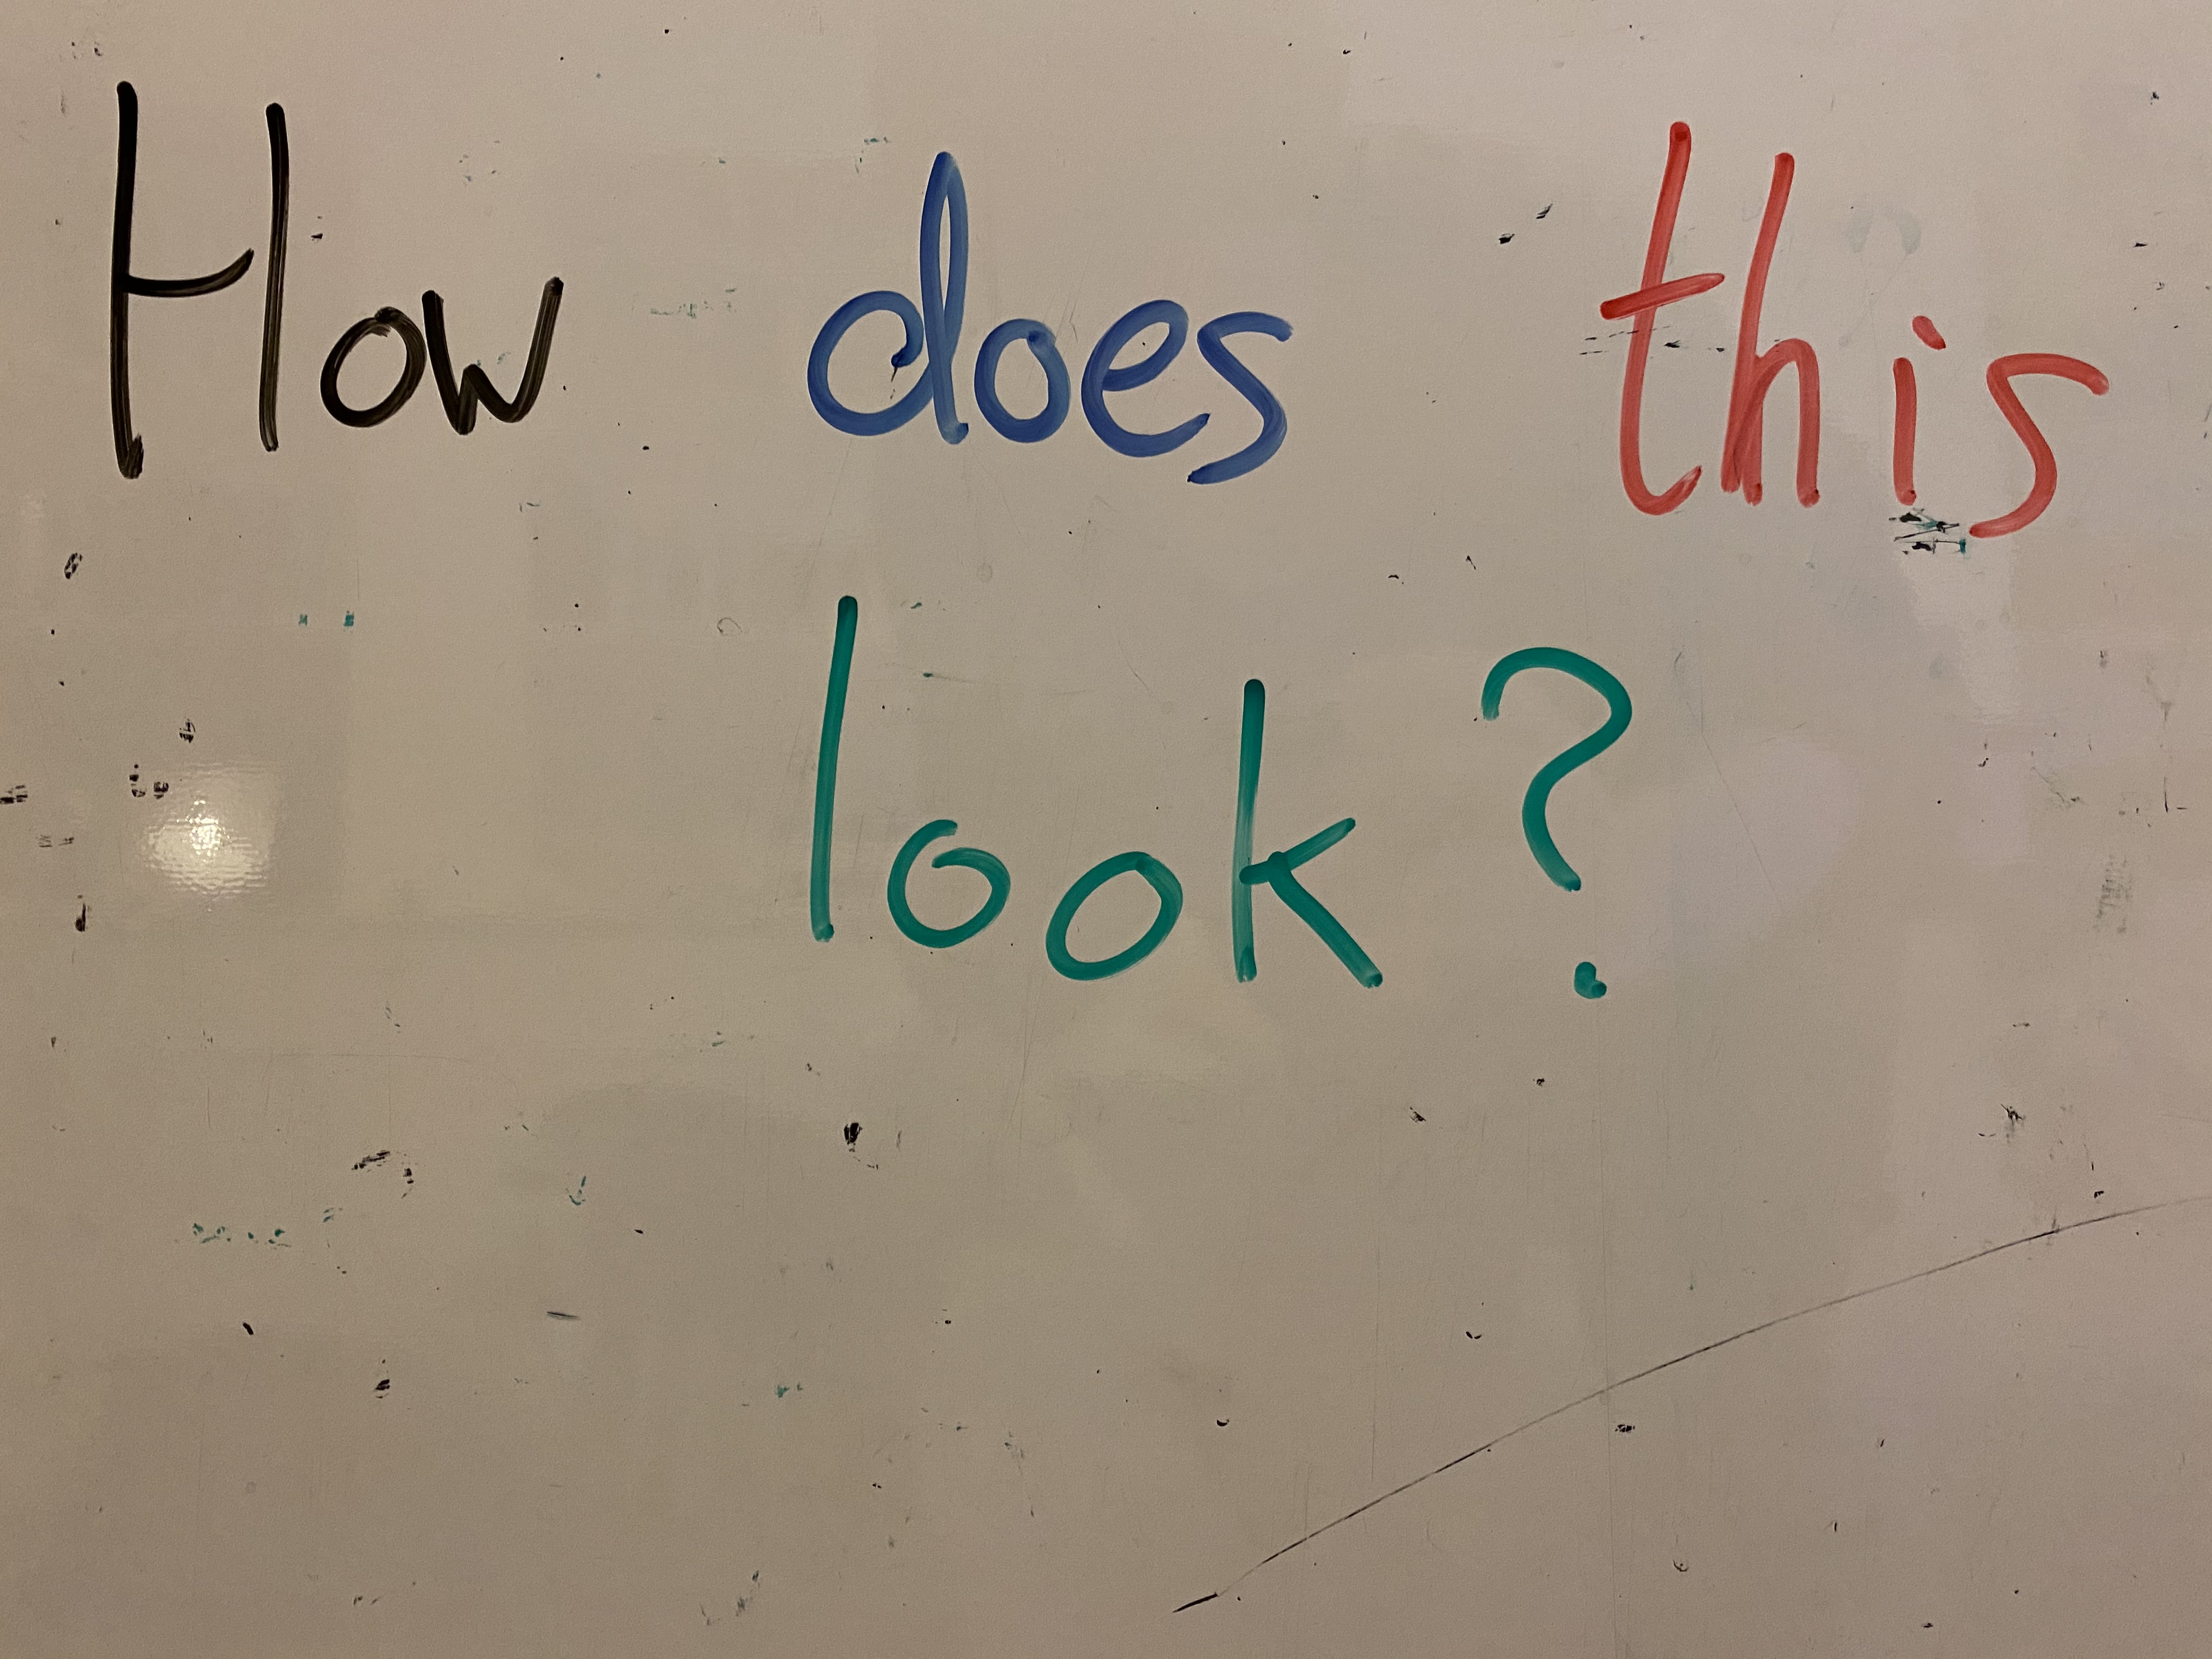 How does this
look?